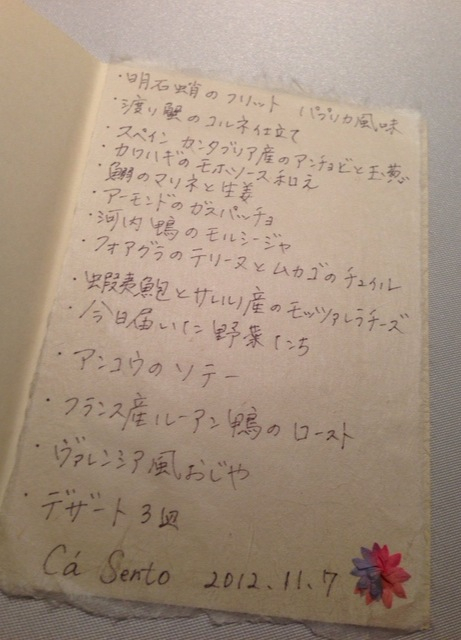 ・明石蛸のフリット パプリカ風味
・渡り蟹のコルネ仕立て
・スペイン カンタブリア産のアンチョビと玉葱
・カワハギのモホソース和え
・鰯のマリネと生姜
・アーモンドのガスパッチョ
・河内鴨のモルシージャ
・フォアグラのテリーヌとムカゴのチュイル
・蝦夷鮑とサレルノ産のモッツァレラチーズ
・今日届いた野菜たち
・アンコウのソテー
・フランス産ルーアン鴨のロースト
・ヴァレンシア風おじや
・デザート3皿
Cá Sento 2012.11.7